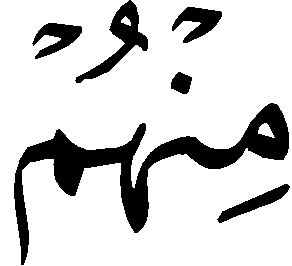 مِنْهُمْ